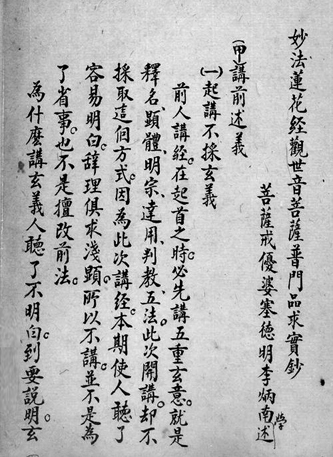 妙法蓮花经觀世音菩薩普門品求實鈔
菩薩戒優婆塞德明李炳南學述
(甲)講前述義
(一)起講不採玄義
前人講經。在起首之時。必先講五重玄意。就是
釋名、顯體、明宗、達用、判教、五法。此次開講。却不
採取這個方式。因為此次講經。本期使人聽了
容易明白。辞理俱求淺顯。所以不講。並不是為
了省事。也不是擅改前法。
為什麽講玄義人聽了不明白。到要說明。玄